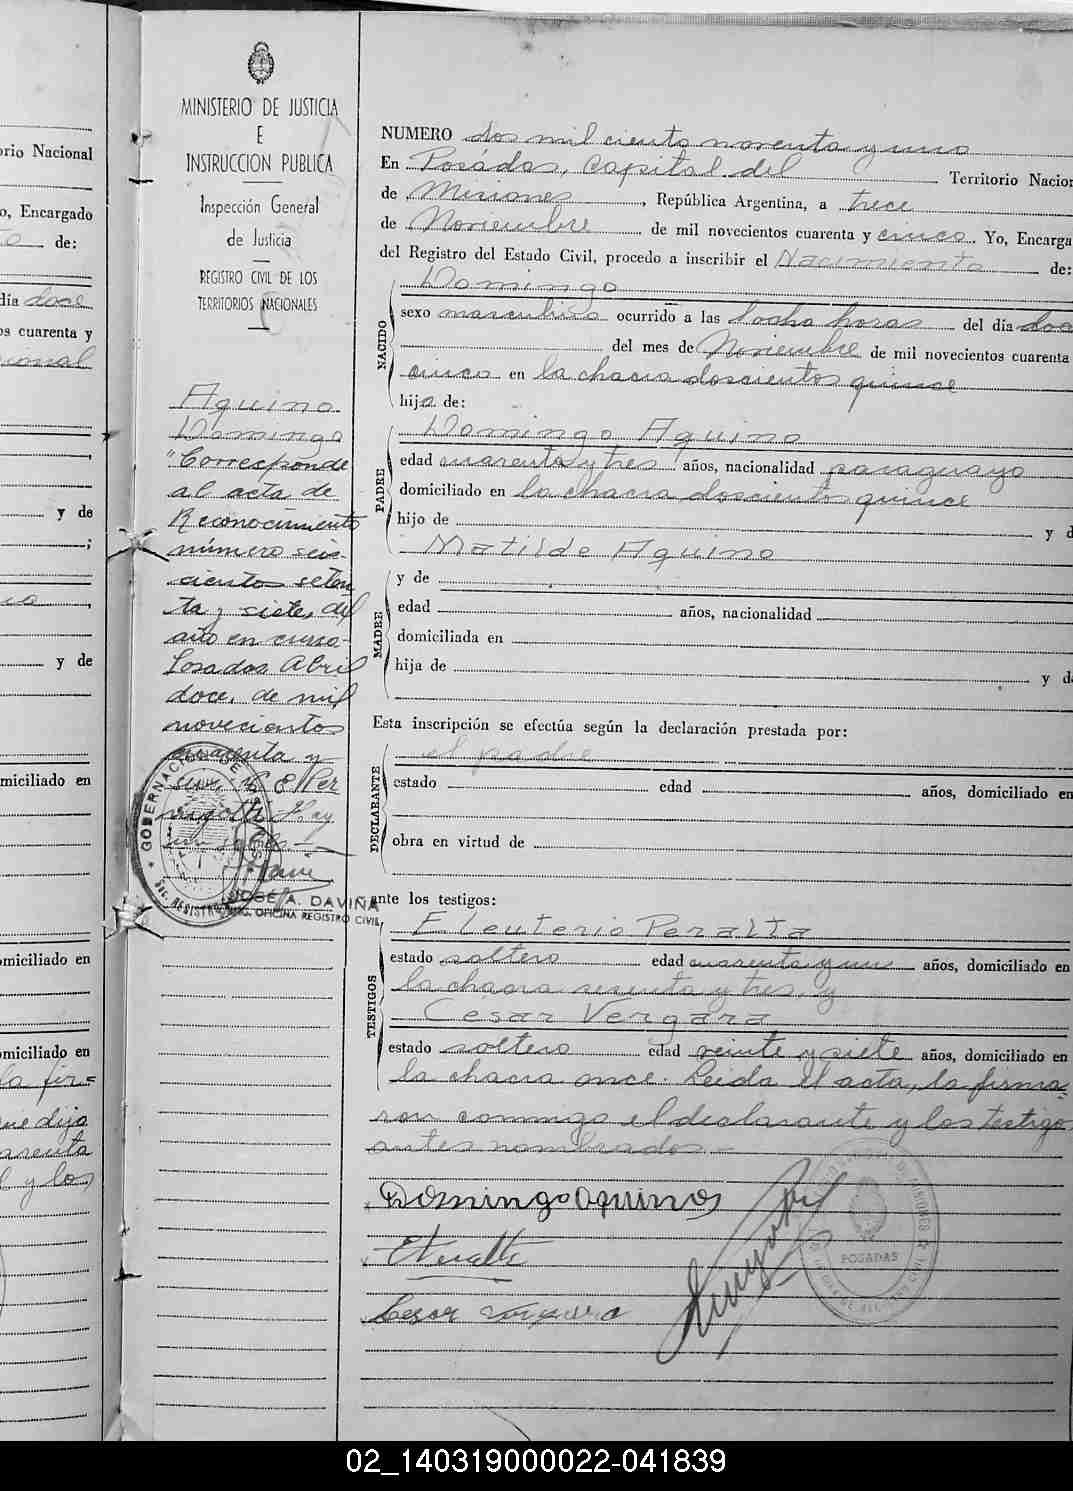 orio Nacional
o, Encargado
de:
día doce
os cuarenta y
y de
;
y de
miciliado en
omiciliado en
omiciliado en
la fir=
que dijo
arenta
l y los
MINISTERIO DE JUSTICIA
E
INSTRUCCION PUBLICA
Inspección General
de Justicia
REGISTRO CIVIL DE LOS
TERRITORIOS NACIONALES
Aquino
Domingo
"Corresponde
al acta de
Reconocimiento
número seis-
cientos seten
ta y siete, del
año en curso-
Posadas Abril
doce, de mil
novecientos
cuarenta y
GOBERNACION DE MISIONES
JOSE A. DAVIÑA
OFICINA REGISTRO CIVIL
NUMERO dos mil ciento noventa y uno
En Posadas, Capital del Territorio Nacion
de Misiones, República Argentina, a trece
de Noviembre de mil novecientos cuarenta y cinco. Yo, Encarga
del Registro del Estado Civil, procedo a inscribir el Nacimiento de:
NACIDO
Domingo
sexo masculino ocurrido a las ocho horas del día doce
del mes de Noviembre de mil novecientos cuarenta
cinco en la chacra doscientos quince
hijo de:
PADRE
Domingo Aquino
edad cuarenta y tres años, nacionalidad paraguayo
domiciliado en la chacra doscientos quince
hijo de y d
Matilde Aquino
MADRE
y de
edad años, nacionalidad
domiciliada en
hija de y de
Esta inscripción se efectúa según la declaración prestada por:
DECLARANTE
el padre
estado edad años, domiciliado en
obra en virtud de
ante los testigos:
TESTIGOS
Eleuterio Peralta
estado soltero edad cuarenta y un años, domiciliado en
la chacra sesenta y tres, y
Cesar Vergara
estado soltero edad veinte y siete años, domiciliado en
la chacra once. Leida el acta, la firma=
ron conmigo el declarante y los testigo
antes nombrados.-
Domingo Aquino
EPeralta
Cesar Vergara
POSADAS
02_140319000022-041839